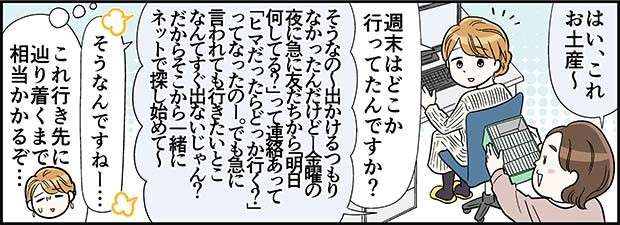 はい、これ
お土産〜
週末はどこか
行ってたんですか?
そうなの〜出かけるつもり
なかったんだけどー金曜の
夜に急に友だちから「明日
何してる?」って連絡あって
「ヒマだったらどっか行く?」
ってなったのー。でも急に
言われても行きたいとこ
なんてすぐ出ないじゃん?
だからそこから一緒に
ネットで探し始めて〜
そうなんですねー…
これ行き先に
辿り着くまで
相当かかるぞ…